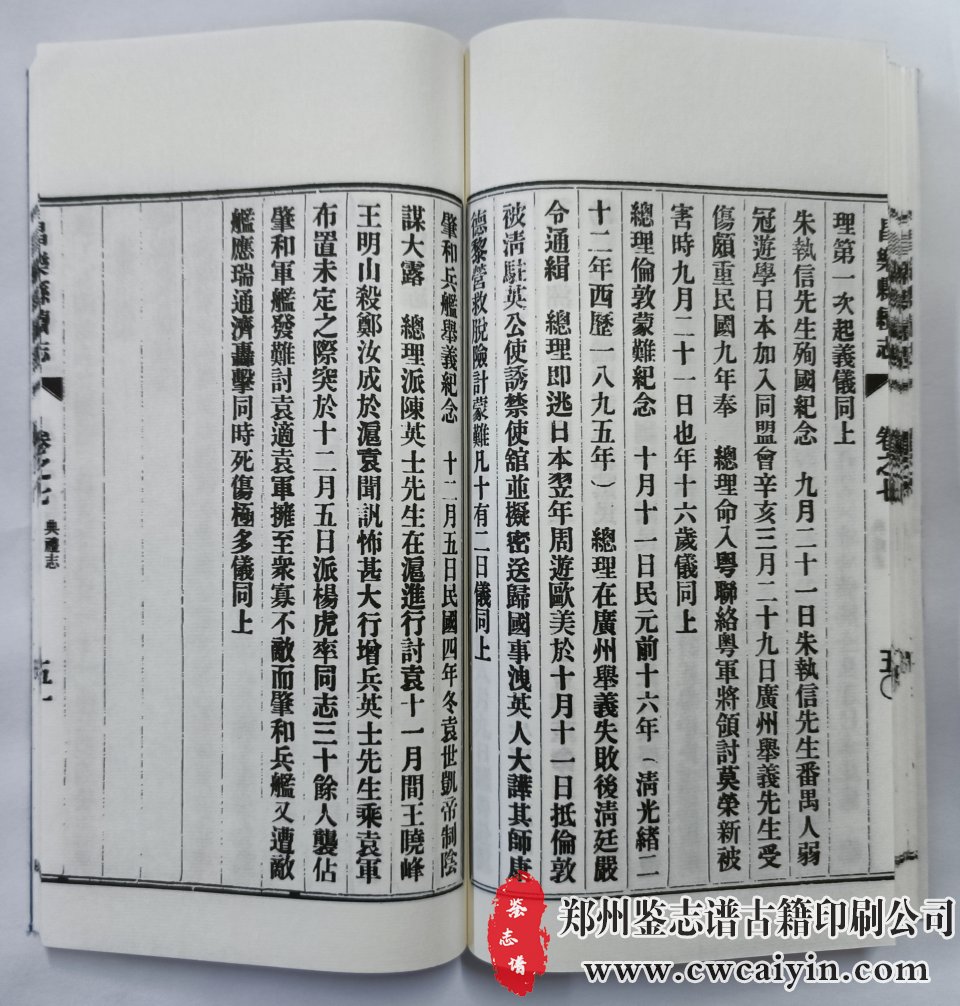 理第一次起義儀同上
朱執信先生殉國紀念 九月二十一日朱執信先生番禺人弱
冠遊學日本加入同盟會辛亥三月二十九日廣州舉義先生受
傷頗重民國九年奉 總理命入粵聯絡粵軍將領討莫榮新被
害時九月二十一日也年十六歲儀同上
總理倫敦蒙難紀念 十月十一日民元前十六年（清光緒二
十二年西歷一八九五年） 總理在廣州舉義失敗後清廷嚴
令通緝 總理即逃日本翌年周遊歐美於十月十一日抵倫敦
被清駐英公使誘禁使舘並擬密送歸國事洩英人大譁其師康
德黎營救脫險計蒙難凡十有二日儀同上
肇和兵艦舉義紀念 十二月五日民國四年冬袁世凱帝制陰
謀大露 總理派陳英士先生在滬進行討袁十一月間王曉峰
王明山殺鄭汝成於滬袁聞訊怖甚大行增兵英士先生乘袁軍
布置未定之際突於十二月五日派楊虎率同志三十餘人襲佔
肇和軍艦發難討袁適袁軍擁至衆寡不敵而肇和兵艦又遭敵
艦應瑞通濟轟擊同時死傷極多儀同上
昌樂縣續志 卷之七 典禮志 五一
昌樂縣續志 卷之七 五〇
鉴志谱
郑州鉴志谱古籍印刷公司
www.cwcaiyin.com